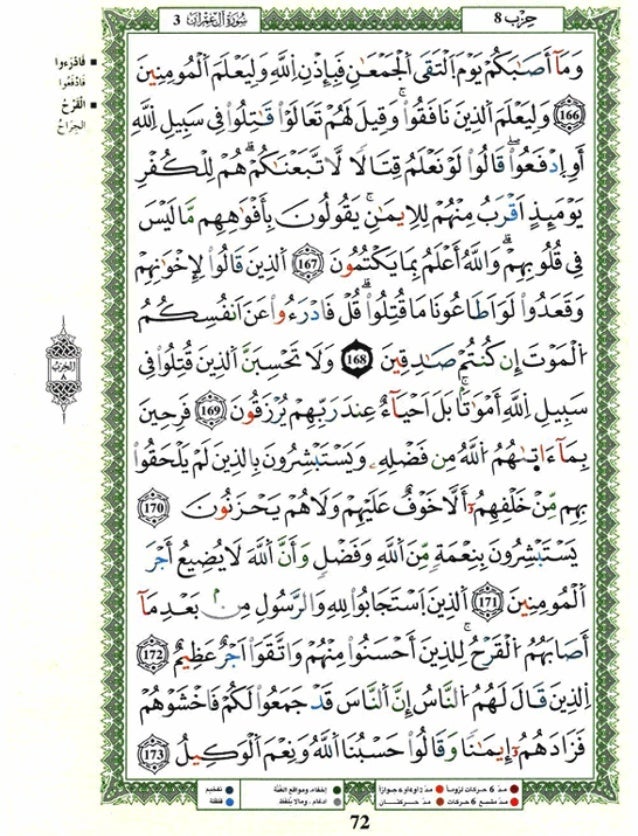 حِزْب 8
سُورَةُ آلِ عِمْرَان 3
وَمَآ أَصَٰبَكُمْ يَوْمَ اَ۬لْتَقَى اَ۬لْجَمْعَٰنِ فَبِإِذْنِ اِ۬للَّهِ وَلِيَعْلَمَ اَ۬لْمُومِنِينَ
166 وَلِيَعْلَمَ اَ۬لذِينَ نَافَقُواْۖ وَقِيلَ لَهُمْ تَعَالَوْاْ قَٰتِلُواْ فِي سَبِيلِ اِ۬للَّهِ
أَوِ اِ۪دْفَعُواْۖ قَالُواْ لَوْ نَعْلَمُ قِتَالاٗ لَّاتَّبَعْنَٰكُمْۖ هُمْ لِلْكُفْرِ
يَوْمَئِذٍ اَقْرَبُ مِنْهُمْ لِلِايمَٰنِۖ يَقُولُونَ بِأَفْوَٰهِهِم مَّا لَيْسَ
فِي قُلُوبِهِمْۖ وَاللَّهُ أَعْلَمُ بِمَا يَكْتُمُونَ 167 اَ۬لذِينَ قَالُواْ لِإِخْوَٰنِهِمْ
وَقَعَدُواْ لَوَ اَطَاعُونَا مَا قُتِلُواْۖ قُلْ فَادْرَءُواْ عَنَ اَنفُسِكُمُ
اُ۬لْمَوْتَ إِن كُنتُمْ صَٰدِقِينَ 168 وَلَا تَحْسِبَنَّ اَ۬لذِينَ قُتِلُواْ فِي
سَبِيلِ اِ۬للَّهِ أَمْوَٰتاَۢۖ بَلَ اَحْيَآءٌ عِندَ رَبِّهِمْ يُرْزَقُونَ 169 فَرِحِينَ
بِمَآ ءَات۪يٰهُمُ اُ۬للَّهُ مِن فَضْلِهِۦ وَيَسْتَبْشِرُونَ بِالذِينَ لَمْ يَلْحَقُواْ
بِهِم مِّنْ خَلْفِهِمُۥٓ أَلَّا خَوْفٌ عَلَيْهِمْ وَلَا هُمْ يَحْزَنُونَ 170
يَسْتَبْشِرُونَ بِنِعْمَةٖ مِّنَ اَ۬للَّهِ وَفَضْلٖ وَأَنَّ اَ۬للَّهَ لَا يُضِيعُ أَجْرَ
اَ۬لْمُومِنِينَ 171 اَ۬لذِينَ اَ۪سْتَجَابُواْ لِلهِ وَالرَّسُولِ مِنۢ بَعْدِ مَآ
أَصَابَهُمُ اُ۬لْقَرْحُۖ لِلذِينَ أَحْسَنُواْ مِنْهُمْ وَاتَّقَوَاْ اَجْرٌ عَظِيمٌ 172
اِ۬لذِينَ قَالَ لَهُمُ اُ۬لنَّاسُ إِنَّ اَ۬لنَّاسَ قَدْ جَمَعُواْ لَكُمْ فَاخْشَوْهُمْ
فَزَادَهُمُۥٓ إِيمَٰناٗ وَقَالُواْ حَسْبُنَا اَ۬للَّهُ وَنِعْمَ اَ۬لْوَكِيلُ 173
فَادْرَءُوا
فَادْفَعُوا
الْقَرْحُ
الجِرَاحُ
الحِزْبُ
٨
مدّ 6 حركات لزوماً
مدّ 2 أو 4 أو 6 جوازاً
إخفاء، ومواقع الغُنَّة
تفخيم
مدّ مشبع 6 حركات
مدّ حركتان
ادغام، وما لا يُلفظ
قلقلة
72